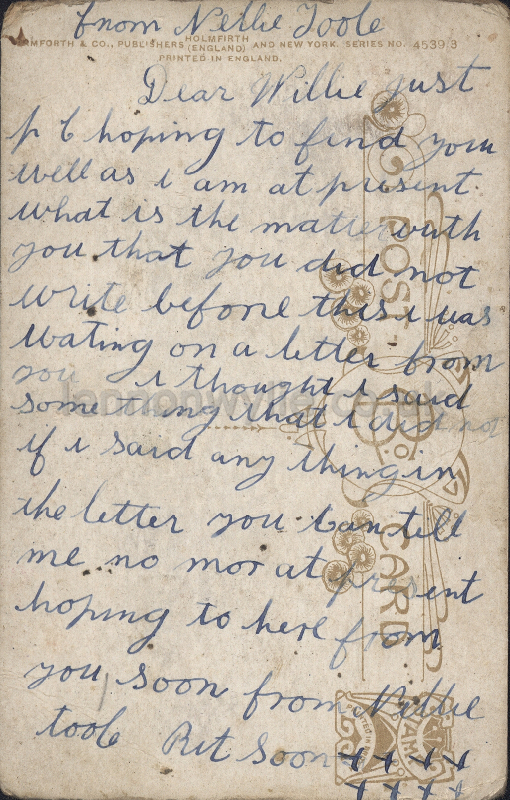 from Nellie Toole
HOLMFIRTH
BAMFORTH & CO., PUBLISHERS (ENGLAND) AND NEW YORK. SERIES NO. 4539/3
PRINTED IN ENGLAND.
Dear Willie just
p c hoping to find you
well as i am at present
what is the matter with
you that you did not
write before this i was
wating on a letter from
you i thought i said
some thing that i did not
if i said any thing in
the letter you can tell
me no mor at present
hoping to here from
you soon from Nellie
toole Rit Soon x x x x
x x x x
POST CARD